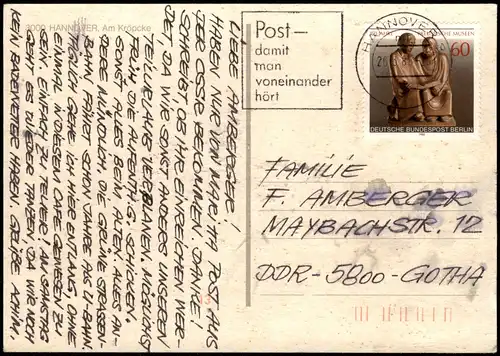 3000 HANNOVER, Am Kröpcke
LIEBE AMBERGER!
HABEN NUR VON MARITA POST AUS
DER OSSR BEKOMMEN. DANKE!
SCHREIBT, OB IHR EINREICHEN WER-
DET, DA WIR SONST ANDERS UNSEREN
TEILURLAUB VERPLANEN. MÖGLICHST
FRÜH DIE AUFENTH.G. SCHICKEN.
SONST ALLES BEIM ALTEN. ALLES AN-
DERE MÜNDLICH. DIE GRÜNE STRASSEN-
BAHN FÄHRT SCHON JAHRE ALS U-BAHN.
TÄGLICH GEHE ICH HIER ENTLANG OHNE
EINMAL IN DIESEM CAFE GEWESEN ZU
SEIN. EINFACH ZU TEUER! AM SAMSTAG
GEHT ES WIEDER TANZEN, DA WIR NOCH
KEIN BADEWETTER HABEN. GRÜSSE ACHIM.
Post-
damit
man
voneinander
hört
HANNOVER
60
DEUTSCHE BUNDESPOST BERLIN
FAMILIE
F. AMBERGER
MAYBACHSTR. 12
DDR-5800-GOTHA